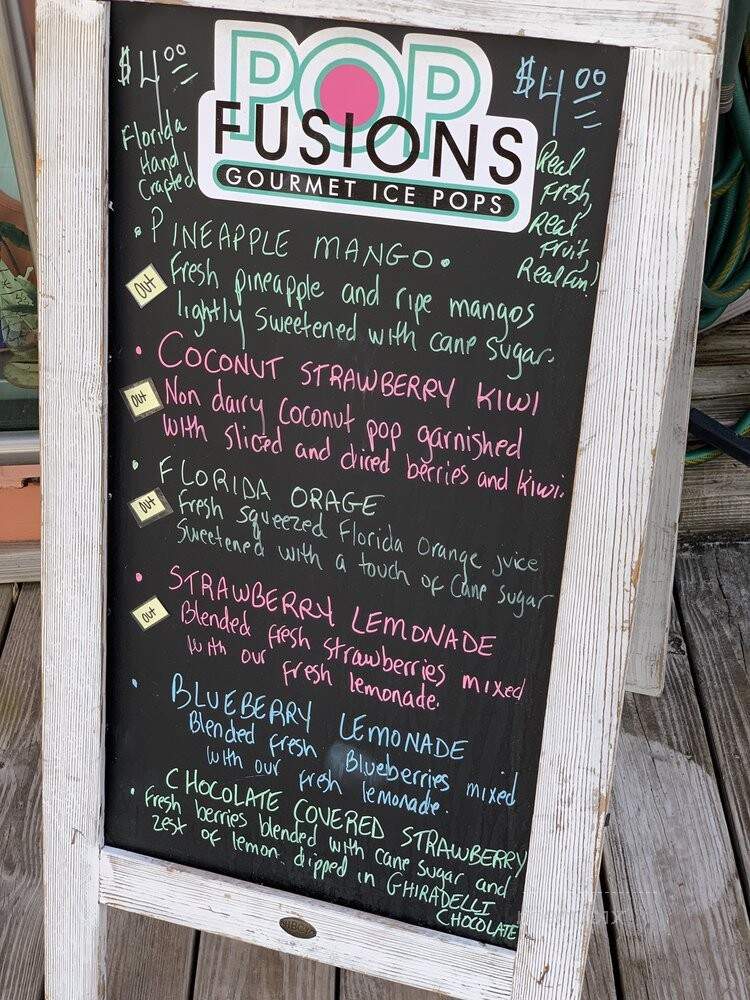 $4.00
POP
$4.00
FUSIONS
GOURMET ICE POPS
Florida
Hand
Crafted
Real
Fresh,
Real
Fruit
Real Fun!
• PINEAPPLE MANGO •
OUT
Fresh pineapple and ripe mangos
lightly sweetened with cane sugar.
• COCONUT STRAWBERRY KIWI
OUT
Non dairy Coconut pop garnished
with sliced and diced berries and kiwi.
• FLORIDA ORAGE
OUT
Fresh squeezed Florida Orange juice
Sweetened with a touch of Cane Sugar
• STRAWBERRY LEMONADE
OUT
Blended fresh strawberries mixed
with our fresh lemonade.
• BLUEBERRY LEMONADE
Blended fresh Blueberries mixed
with our fresh lemonade.
• CHOCOLATE COVERED STRAWBERRY
Fresh berries blended with cane sugar and
zest of lemon. dipped in GHIRADELLI
CHOCOLATE